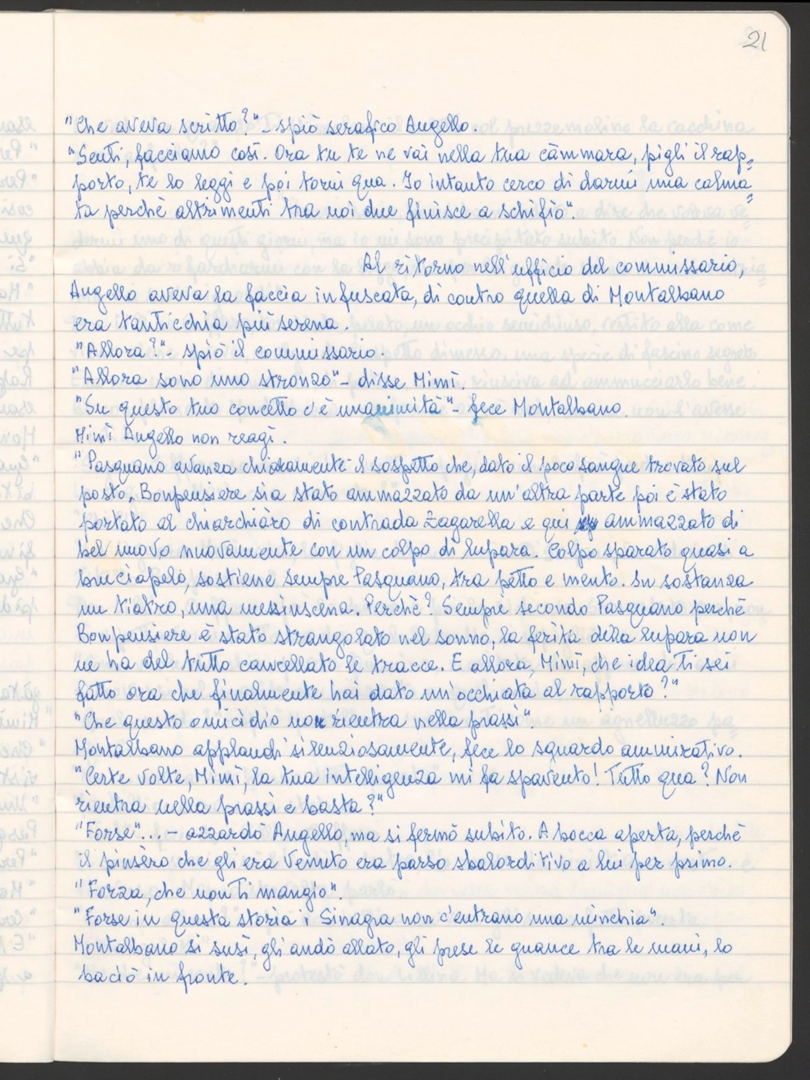 21
"Che aveva scritto?" - spiò serafico Augello.
"Senti, facciamo così. Ora tu te ne vai nella tua càmmara, pigli il rap=
porto, te lo leggi e poi torni qua. Io intanto cerco di darmi una calma=
ta perchè altrimenti tra noi due finisce a schifìo".
Al ritorno nell'ufficio del commissario,
Augello aveva la faccia infuscata, di contro quella di Montalbano
era tanticchia più serena.
"Allora?" - spiò il commissario.
"Allora sono uno stronzo" - disse Mimì.
"Su questo tuo concetto c'è unanimità" - fece Montalbano.
Mimì Augello non reagì.
"Pasquano avanza chiaramente il sospetto che, dato il poco sangue trovato sul
posto, Bonpensiere sia stato ammazzato da un'altra parte poi è stato
portato al chiarchiàro di contrada Zagarella e qui ammazzato di
bel nuovo nuovamente con un colpo di lupara. Colpo sparato quasi a
bruciapelo, sostiene sempre Pasquano, tra petto e mento. In sostanza
un tiatro, una messinscena. Perchè? Sempre secondo Pasquano perchè
Bonpensiere è stato strangolato nel sonno, la ferita della lupara non
ne ha del tutto cancellato le tracce. E allora, Mimì, che idea ti sei
fatto ora che finalmente hai dato un'occhiata al rapporto?"
"Che questo omicidio non rientra nella prassi".
Montalbano applaudì silenziosamente, fece lo sguardo ammirativo.
"Certe volte, Mimì, la tua intelligenza mi fa spavento! Tutto qua? Non
rientra nella prassi e basta?"
"Forse"... - azzardò Augello, ma si fermò subito. A bocca aperta, perchè
il pinsèro che gli era venuto era parso sbalorditivo a lui per primo.
"Forza, che non ti mangio".
"Forse in questa storia i Sinagra non c'entrano una minchia".
Montalbano si susì, gli andò allato, gli prese le guance tra le mani, lo
baciò in fronte.